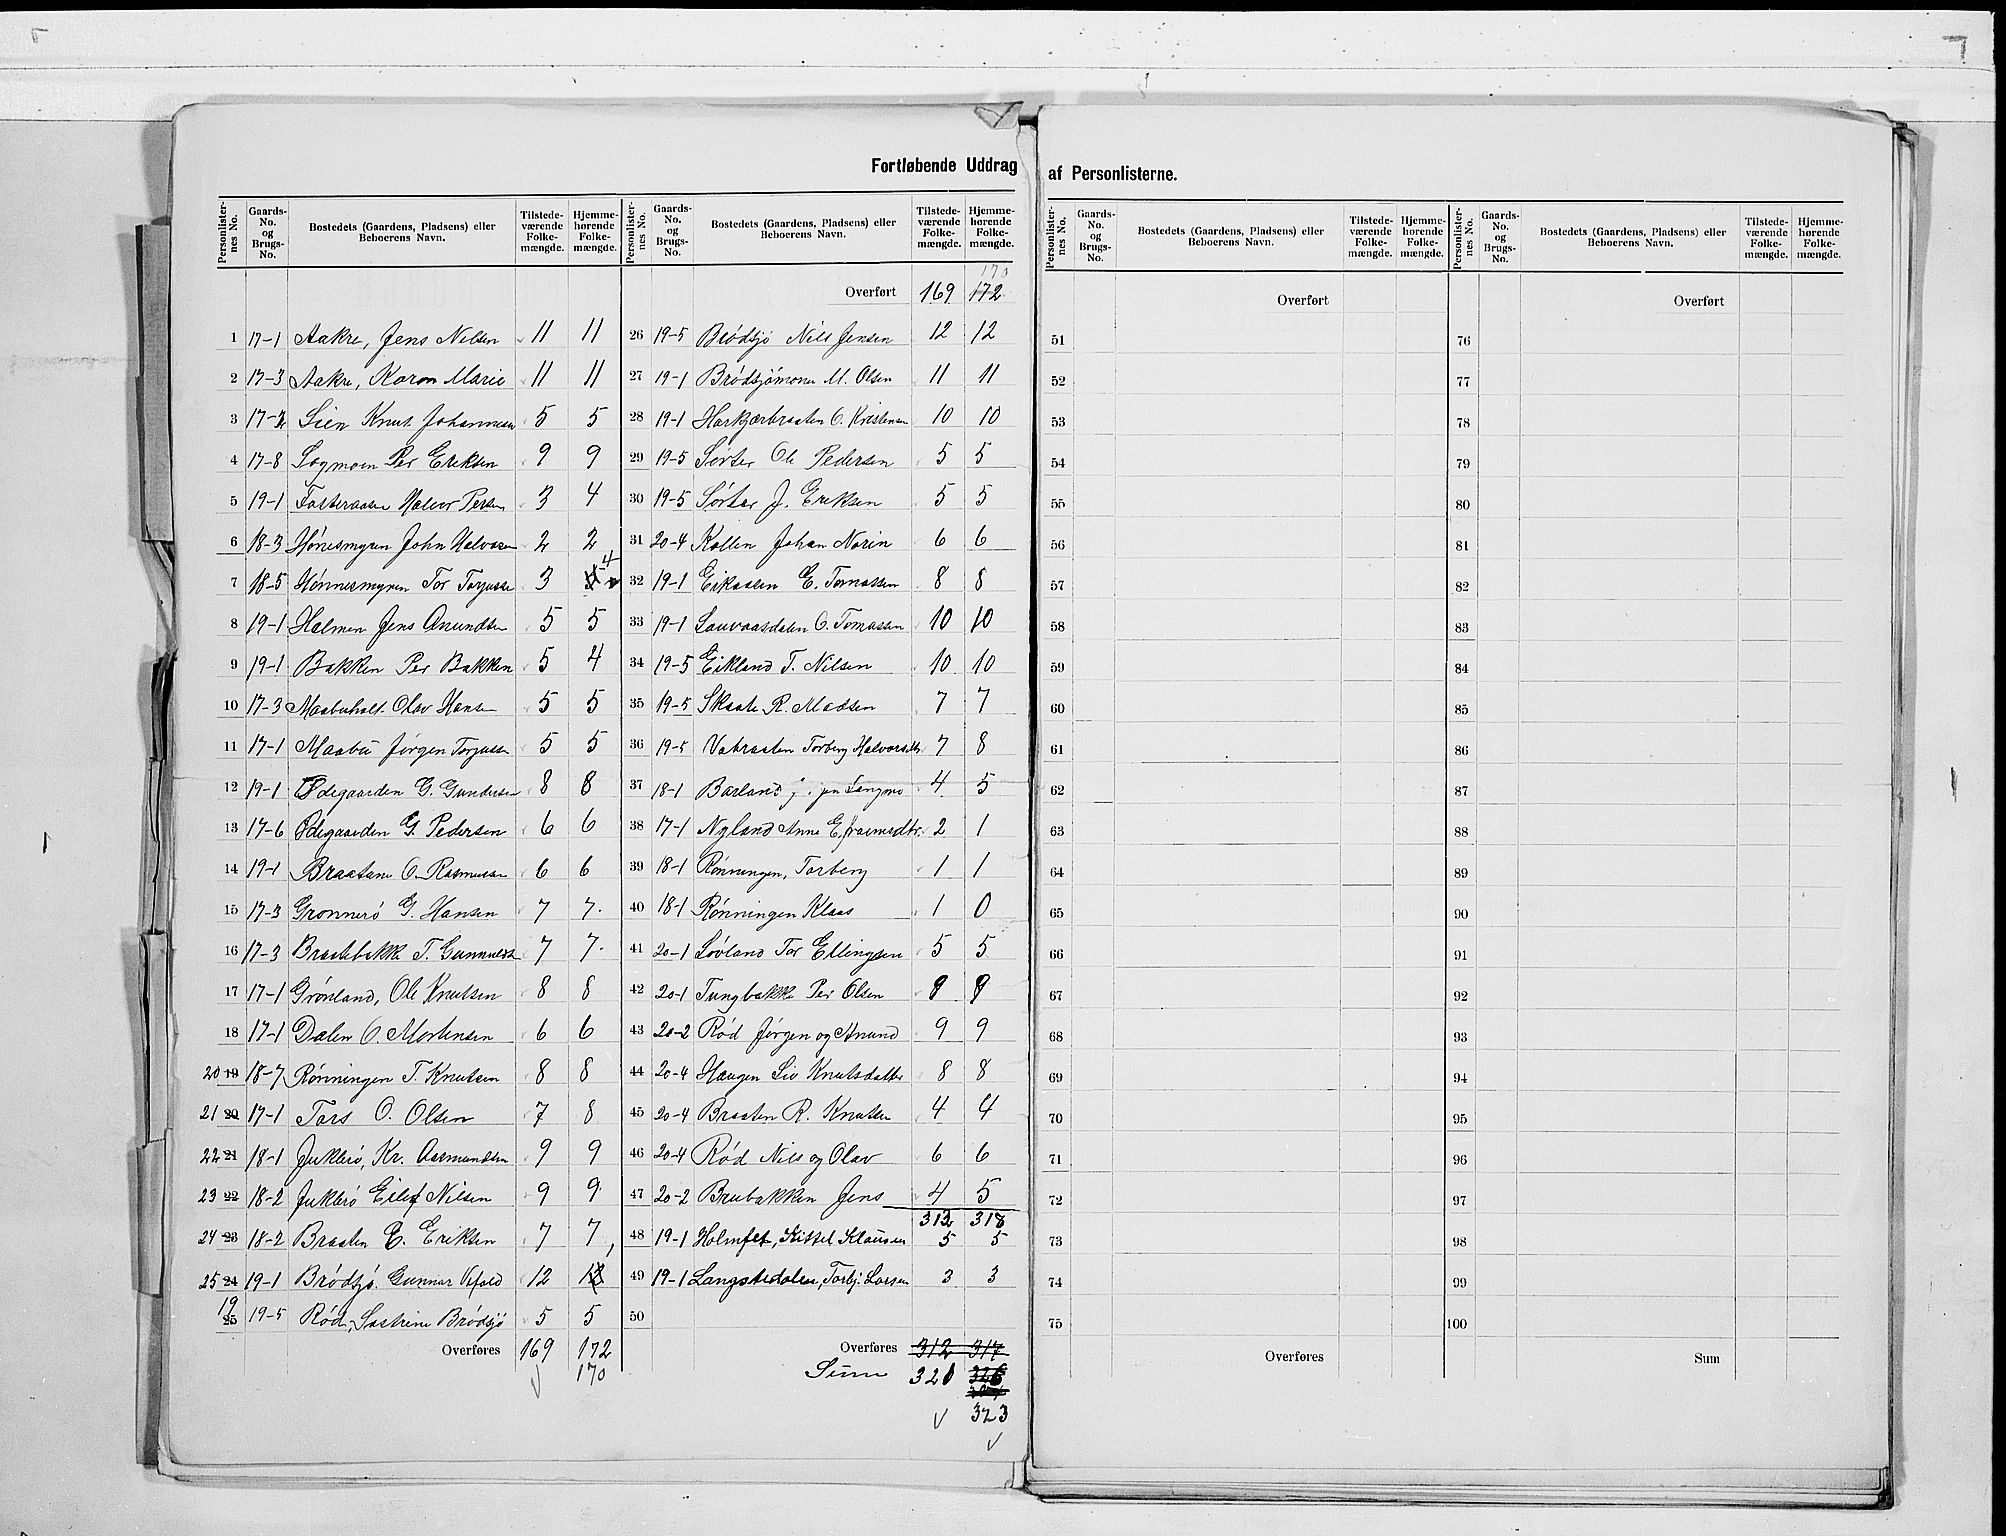 Fortløbende Uddrag af Personlisterne.
Personlister-nes No. Gaards-No. og Brugs-No. Bostedets (Gaardens, Pladsens) eller Beboerens Navn. Tilstede-værende Folke-mængde. Hjemme-hørende Folke-mængde.
1 17-1 Aakre, Jens Nilsen 11 11
2 17-3 Aakre, Karen Marie 11 11
3 17-2 Lien Knut Johannesen 5 5
4 17-8 Løgmoen Per Eriksen 9 9
5 19-1 Fosteraasen Halvor Persen 3 4
6 18-3 Hønesmyren John Halvorsen 2 2
7 18-5 Hønnesmyren Tor Torjussen 3 4
8 19-1 Holmen Jens Anundsen 5 5
9 19-1 Bakken Per Bakken 5 4
10 17-3 Maabuholt Olav Hansen 5 5
11 17-1 Maabu Jørgen Torjussen 5 5
12 19-1 Ødegaarden G. Gundersen 8 8
13 17-6 Ødegaarden G. Pedersen 6 6
14 19-1 Braatane O. Rasmussen 6 6
15 17-3 Grønnerø G. Hansen 7 7
16 17-3 Braatebakke T. Gunnulds 7 7
17 17-1 Grønland, Ole Knutsen 8 8
18 17-1 Dalen O. Mortensen 6 6
20 19 18-7 Rønningen T. Knutsen 8 8
21 20 17-1 Tors O. Olsen 7 8
22 21 18-1 Juklerø, Kr. Aasmundsen 9 9
23 22 18-2 Juklerø Eilef Nilsen 9 9
24 23 18-2 Braaten E. Eriksen 7 7
25 24 19-1 Brødsjø Gunnar 12 12
19 25 19-5 Rød, Brødsjø 5 5
Overføres 169 172
170
Personlister-nes No. Gaards-No. og Brugs-No. Bostedets (Gaardens, Pladsens) eller Beboerens Navn. Tilstede-værende Folke-mængde. Hjemme-hørende Folke-mængde.
170
Overført 169 172
26 19-5 Brødsjø Nils Jensen 12 12
27 19-1 Brødsjømonen M. Olsen 11 11
28 19-1 Harkjærbraaten O. Kristensen 10 10
29 19-5 Sørter Ole Pedersen 5 5
30 19-5 Sørter J. Eriksen 5 5
31 20-4 Kollen Johan Norin 6 6
32 19-1 Eikaasen E. Tomassen 8 8
33 19-1 Lauvaasdalen O. Tomassen 10 10
34 19-5 Eikland T. Nilsen 10 10
35 19-5 Skaate R. Madsen 7 7
36 19-5 Vabraaten Torberg Halvorsdtr 7 8
37 18-1 Barland 4 5
38 17-1 Nyland Anne Efraimsdtr. 2 1
39 18-1 Rønningen, Torberg 1 1
40 18-1 Rønningen Klaas 1 0
41 20-1 Løvland Tor Ellingsen 5 5
42 20-1 Tungbakke Per Olsen 9 9
43 20-2 Rød Jørgen og Anund 9 9
44 20-4 Haugen Liv Knutsdatter 8 8
45 20-4 Braaten R. Knutsen 4 4
46 20-4 Rød Nils og Olav 6 6
47 20-2 Brubakken Jens 4 5
312 318
48 19-1 Holmfet, Kittel Klausen 5 5
49 19-1 Langstedalen, Torbj. Larsen 3 3
50
Overføres 312 317
Sum 320 326
323
Personlister-nes No. Gaards-No. og Brugs-No. Bostedets (Gaardens, Pladsens) eller Beboerens Navn. Tilstede-værende Folke-mængde. Hjemme-hørende Folke-mængde.
Overført
51
52
53
54
55
56
57
58
59
60
61
62
63
64
65
66
67
68
69
70
71
72
73
74
75
Overføres
Personlister-nes No. Gaards-No. og Brugs-No. Bostedets (Gaardens, Pladsens) eller Beboerens Navn. Tilstede-værende Folke-mængde. Hjemme-hørende Folke-mængde.
Overført
76
77
78
79
80
81
82
83
84
85
86
87
88
89
90
91
92
93
94
95
96
97
98
99
100
Sum